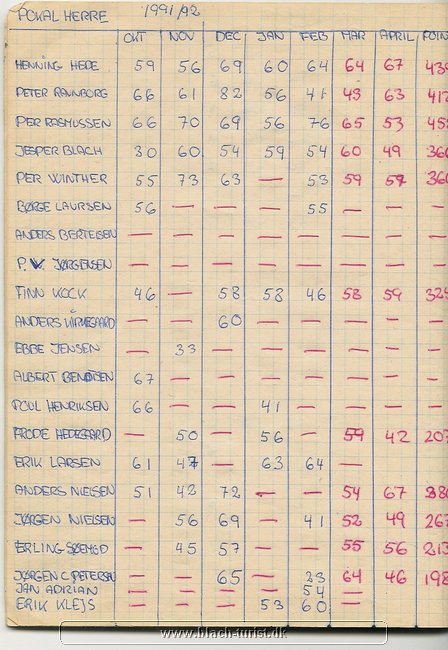 POKAL HERRE 1991/92
OKT NOV DEC JAN FEB MAR APRIL POIN
HENNING HEDE 59 56 69 60 64 64 67 439
PETER RANNBORG 66 61 82 56 41 43 63
PER RASMUSSEN 66 70 69 56 76 65 53 455
JESPER BLACH 30 60 54 59 54 60 49 366
PER WINTHER 55 73 63 — 53 59 57
BØRGE LAURSEN 56 — — — 55 — — —
ANDERS BERTELSEN — — — — — — — —
P. V. JØRGENSEN — — — — — — — —
FINN KOCK 46 — 58 58 46 58 59 324
ANDERS KIRKEGAARD — — 60 — — — — —
EBBE JENSEN — 33 — — — — — —
ALBERT BENDTSEN 67 — — — — — — —
POUL HENRIKSEN 66 — — 41 — — — —
FRODE HEDEGARD — 50 — 56 — 59 42 207
ERIK LARSEN 61 47 — 63 64 —
ANDERS NIELSEN 51 42 72 — — 54 67
JØRGEN NIELSEN — 56 69 — 41 52 49 267
ERLING — 45 57 — — 55 56 213
JØRGEN C PETERSEN — — 65 — 23 64 46 198
JAN ADRIAN — — — — 54 —
ERIK KLEJS — — — 53 60 —
www.blach-turist.dk